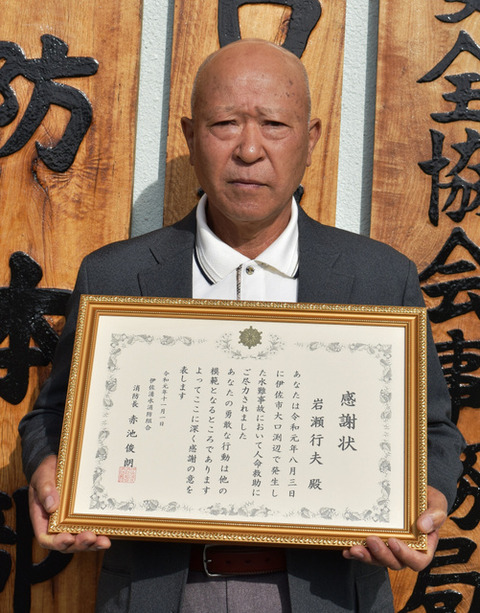 全協会事務局
防本部
感謝状
岩瀬行夫 殿
あなたは令和元年八月三日
に伊佐市大口渕辺で発生し
た水難事故において人命救助に
ご尽力されました
あなたの勇敢な行動は他の
模範となるところであります
よってここに深く感謝の意を
表します
令和元年十一月一日
伊佐湧水消防組合
消防長 赤池俊朗